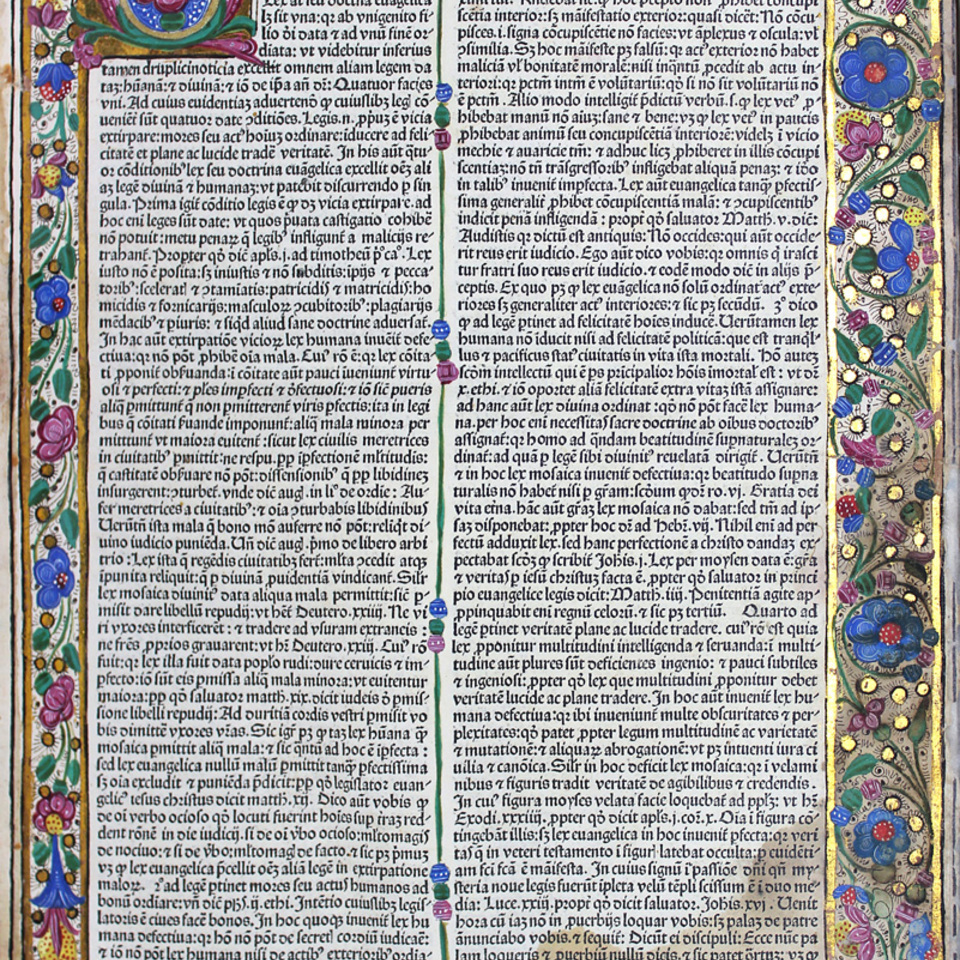 lex seu doctrina euangelica
sit vna: qr ab vnigenito fi-
lio di data & ad vnū finē or-
diata: vt videbitur inferius
tamen druplici noticia excellit omnem aliam legem da
taz: hūanā: & diuinā: & iō de ipa an dē: Quatuor facies
vni. Ad cuius euidentiaz aduertenō ꝙ cuiuslibz legi cō
ueniēt sūt quatuor date ꝯditiōes. Legis. n. ꝓpuz ē vicia
extirpare: mores seu actꝰ hoiuz ordinare: iducere ad feli
citatē et plane ac lucide tradē veritatē. In his aūt q̄tu-
or cōditionibꝰ lex seu doctrina euāgelica excellit oēz ali
az legē diuinā & humanaz: vt patebit discurrendo p sin
gula. Prima igit cōditio legis ē ꝙ dz vicia extirpare. ad
hoc eni leges sūt date: vt quos p̄uata castigatio cohibē
nō potuit: metu penaꝝ q̄ legibꝰ infligunt a malicijs re-
trahant. Propter qd dic apls. j. ad timotheū pca. Lex
iusto nō ē posita: sz iniustis & nō subditis: ipijs & pecca
toribꝰ: scelerat & ꝯtamiatis: patricidis & matricidis: ho
micidis & fornicarijs: masculoꝝ ꝯcubitoribꝰ: plagiarijs
mēdacibꝰ & piuris: & siqd aliud sane doctrine aduersat.
In hac aūt extirpatiōe vicioꝝ lex humana inuēit defe-
ctiua: qr nō pōt ꝓhibē oīa mala. Cuiꝰ rō ē: qr lex cōita-
ti ꝓponit obseruanda: i cōitate aūt pauci iueniunt virtu
osi & perfecti: & ples impfecti & defectuosi: & iō sic pueris
aliq pmittunt q̄ non pmitterent viris pfectis: ita in legi
bus q̄ cōitati seruande imponunt: aliq mala minora per
mittunt vt maiora euitent: sicut lex ciuilis meretrices
in ciuitatibꝰ pmittit: ne respu. pp ipfectionē mltitudis:
q̄ castitatē obseruare nō pōt: dissensionibꝰ q̄ pp libidinez
insurgerent: ꝯturbet. vnde dic aug. in li. de ordie: Au-
fer meretrices a ciuitatibꝰ: & oīa ꝯturbabis libidinibus
Ueruntn ista mala q̄ bono mō auferre nō pōt: relinqt di-
uino iudicio puniēda. Un dic aug. pmo de libero arbi
trio: Lex ista q̄ regēdis ciuitatibz fert: mlta ꝯcedit atqz
ipunita reliquit: q̄ p diuinā ꝓuidentiā vindicant. Silr
lex mosaica diuinis data aliqua mala permittit: sic p-
misit dare libellū repudij: vt het Deutero. xxiiij. Ne vi
ri vxores interficeret: & tradere ad vsuram extraneis:
ne fres ꝓprios grauarent: vt het Deutero. xxiij. Cuiꝰ rō
fuit: qr lex illa fuit data poplo rudi: dure ceruicis & im-
pfecto: iō sūt eis pmissa aliq mala minora: vt euitentur
maiora: pp qd saluator matth. xix. dicit iudeis de pmis-
sione libelli repudij: Ad duritiā cordis vestri pmisit vo
bis dimittē vxores vras. Sic igit pz ꝙ taz lex hūana q̄
mosaica pmittit aliq mala: & sic q̄ntū ad hoc ē ipfecta:
sed lex euangelica nullū malū pmittit tanqz pfectissima
sz oīa excludit & puniēda pdicit: pp qd legislator euan-
gelicꝰ iesus christus dicit matth. xij. Dico aūt vobis ꝙ
de oī verbo ocioso qd locuti fuerint hoies sup iraz red-
dent rōnē in die iudicij. si de oī vbo ocioso: mltomagis
de nociuo: & si de vbo: mltomag de facto. & sic pz pmuz
vz ꝙ lex euangelica pcellit oēz aliā legē in extirpatione
maloꝝ. 2ad legē ptinet mores seu actus humanos ad
bonū ordiare: vn dic phs. ij. ethi. Intētio cuiuslibz legis-
latoris ē ciues facē bonos. In hoc quoqz inuenit lex hu
mana defectiua: qr hō nō pōt de secretis cordiū iudicaē:
& iō nō pōt lex humana nisi de actibꝰ exterioribꝰ ordia-
scētia interior: sz māifestatio exterior: quasi dicēt: Nō cōcu-
pisces. i. signa cōcupiscētie nō facies: vt aplexus & oscula: vl
ꝯsimilia. Sz hoc māifeste pz falsū: qr actꝰ exterior nō habet
maliciā vl bonitatē morale: nisi inqntū ꝓcedit ab actu in-
teriori: qr pctm intm ē volūtariū: qd si nō sit voluntariū nō
ē pctm. Alio modo intelligit pdictū verbū. s. ꝙ lex vet p-
hibebat manū nō aiuz: sane & bene: vz ꝙ lex vet in paucis
ꝓhibebat animū seu concupiscētia interiorē: videlz i vicio
mechie & auaricie tm: & adhuc licz ꝓhiberet in illis cōcupi
scentiaz: nō tn trāsgressoribꝰ infligebat aliquā penaz: & iō
in talibꝰ inuenit impfecta. Lex aūt euangelica tanqz pfectis-
sima generalit ꝓhibet cōcupiscentiā malā: & ꝯcupiscentibꝰ
indicit penā infligendā: propt qd saluator Matth. v. dic:
Audistis qr dictū est antiquis: Nō occides: qui aūt occide-
rit reus erit iudicio. Ego aūt dico vobis: qr omnis q̄ irasci
tur fratri suo reus erit iudicio. & eodē modo dic in alijs p-
ceptis. Ex quo pz ꝙ lex euāgelica nō solū ordinat actꝰ exte-
riores sz generaliter actꝰ interiores: & sic pz secūdū. 3o dico
ꝙ ad legē ptinet ad felicitatē hoies inducē. Ueruntamen lex
humana nō iducit nisi ad felicitatē politicā: que est tranqil
lus & pacificus status ciuitatis in vita ista mortali. Hō autez
scdm intellectū qui ē ps pricipalior hōis imortalis est: vt dr
x. ethi. & iō oportet aliā felicitatē extra vitaz istā assignare:
ad hanc aūt lex diuina ordinat: qd nō pōt facē lex huma-
na. per hoc eni necessitas sacre doctrine ab oibus doctoribꝰ
assignat: qr homo ad q̄ndam beatitudinē supnaturalez or-
dinat: ad quā p legē sibi diuinis reuelatā dirigit. Ueruntn
& in hoc lex mosaica inuenit defectiua: qr beatitudo supna
turalis nō habet nisi p gram: scdum qd ro. vj. Gratia dei
vita etna. hāc aūt graz lex mosaica nō dabat: sed tm ad ip-
saz disponebat: ꝓpter hoc dr ad Heb. vij. Nihil eni ad per
fectū adduxit lex. sed hanc perfectionē a christo dandaz ex-
pectabat scdz qd scribit Johis. j. Lex per moysen data ē: gra
& veritas p iesū christuz facta ē. ꝓpter qd saluator in princi
pio euangelice legis dicit: Matth. iiij. Penitentiā agite ap-
ꝓpinquabit eni regnū celorū. & sic pz tertiū. Quarto ad
legē ptinet veritatē plane ac lucide tradere. cuiꝰ rō est quia
lex ꝓponitur multitudini intelligenda & seruanda: i multi
tudine aūt plures sūt deficientes ingenio: & pauci subtiles
& ingeniosi: ꝓpter qd lex que multitudini ꝓponitur debet
veritatē lucide ac plane tradere. In hoc aūt inuenit lex hu-
mana defectiua: qr ibi inueniunt multe obscuritates & per-
plexitates: qd patet ꝓpter legum multitudinē ac varietatē
& mutationē: & aliquaꝝ abrogationē: vt pz intuenti iura ci
uilia & canōica. Silr in hoc deficit lex mosaica: qr i velami
nibus & figuris tradit veritatē de agibilibus & credendis.
In cuiꝰ figura moyses velata facie loquebat ad pplz: vt hr
Exodi. xxxiiij. ꝓpter qd dicit apls. j. cor. x. Oīa i figura cō-
tingebāt illis: sz lex euangelica in hoc inuenit pfecta: qr veri
tas q̄ in veteri testamento i figuris latebat occulta: p euidēti-
am fci fca ē māifesta. In cuius signū i passiōe dni qn my-
steria noue legis fuerūt ipleta velū tēpli scissum ē i duo me-
dia: Luce. xxiij. propt qd dicit saluator. Johis. xvj. Uenit
hora cū iaz nō in ꝓuerbijs loquar vobis: sz palaz de patre
anunciabo vobis. & sequit: Dicūt ei discipuli: Ecce nūc pa
lam loqueris & ꝓuerbiū nullū dicis. & sic patet q̄rtuz: vz ꝙ